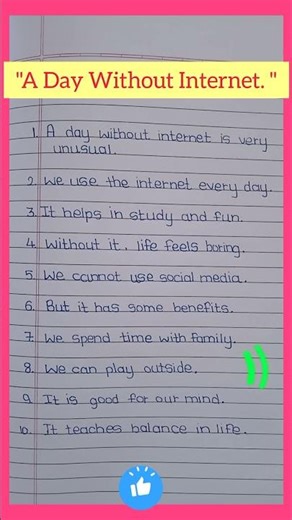 "A Day Without Internet. "
1. A day without internet is very
unusual.
2. We use the internet every day.
3. It helps in study and fun.
4. Without it, life feels boring.
5. We cannot use social media.
6. But it has some benefits.
7. We spend time with family.
8. We can play outside.
9. It is good for our mind.
10. It teaches balance in life.